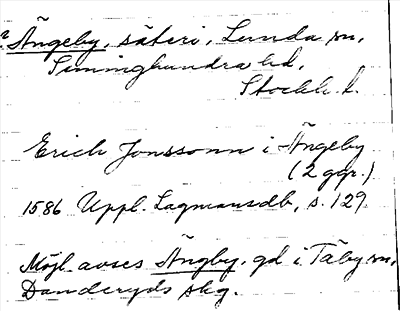 Ängeby, säteri, Lunda sn,
Seminghundra hd,
Stockh. l.
Erich Jonssonn i Ängeby
(2 ggr.)
1586 Uppl. Lagmansdb, s. 129.
Möjl. avses Ängby, gd i Täby sn,
Danderyds skg.